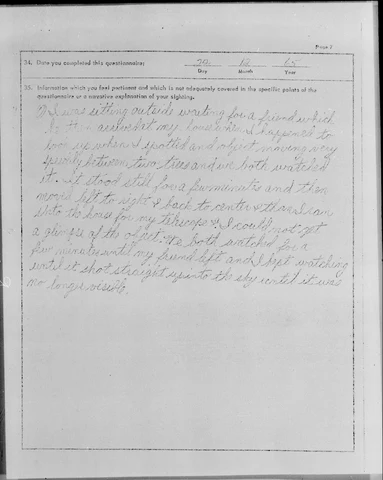 Page 5
34. Date you completed this questionnaire: 29 12 65
Day Month Year
35. Information which you feel pertinent and which is not adequately covered in the specific points of the
questionnaire or a narrative explanation of your sighting.
I was sitting outside waiting for a friend which
arrived at my house when I happened to
look up when I spotted and object moving very
slowly between two trees and we both watched
it. It stood still for a few minutes and then
moved left to right & back to center & then I ran
into the house for my telescope & I could not get
a glimpse of the object. We both watched for a
few minutes until my friend left and I kept watching
until it shot straight up into the sky until it was
no longer visible.